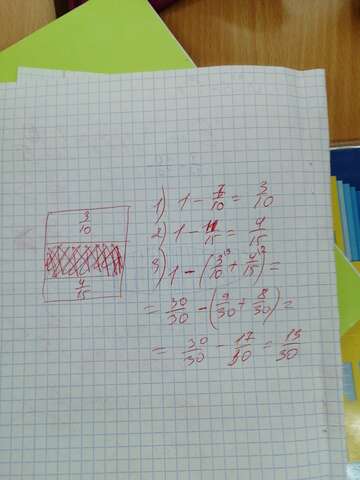 3/10
4/15
1) 1 - 7/10 = 3/10
2) 1 - 11/15 = 4/15
3) 1 - (3/10 ³ + 4/15 ²) =
= 30/30 - (9/30 + 8/30) =
= 30/30 - 17/30 = 13/30